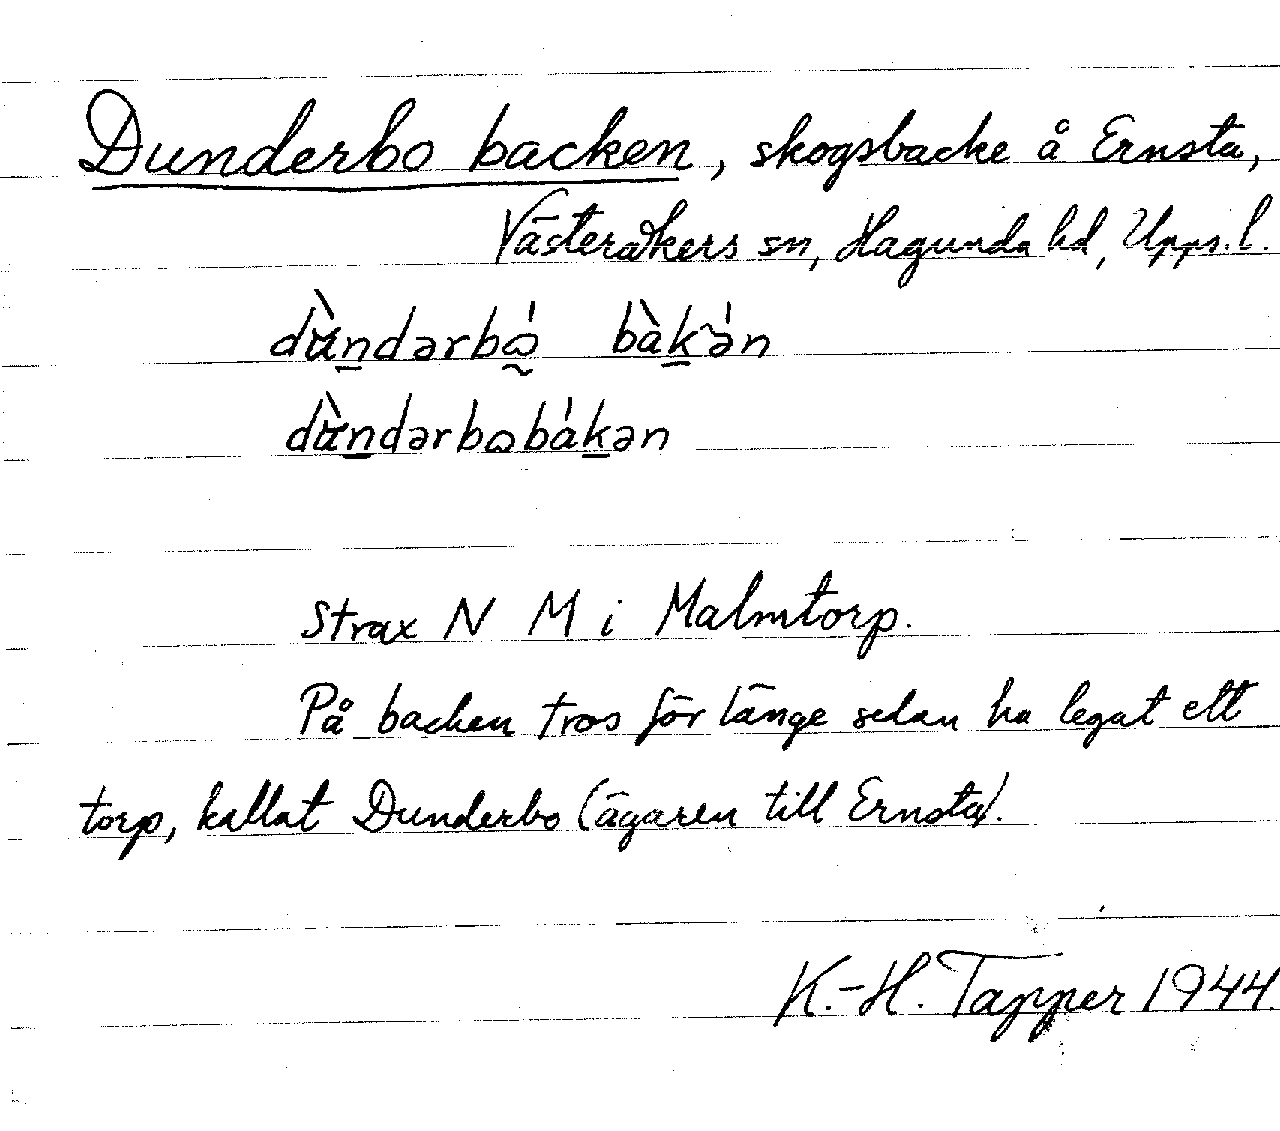 Dunderbo backen, skogsbacke å Ernsta,
Västeråkers sn, Hagunda hd, Upps. l.
Strax N M i Malmtorp.
På backen tros för länge sedan ha legat ett
torp, kallat Dunderbo (ägaren till Ernsta).
K.-H. Tapper 1944.